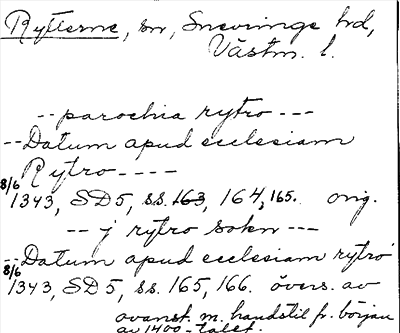 Rytterne, sn, Snevringe hd,
Västm. l.
-- parochia rytro ---
-- Datum apud ecclesiam
Rytro ----
8/6 1343, SD 5, ss. 163, 164, 165. orig.
-- j rytro sokn ---
-- Datum apud ecclesiam rytro
8/6 1343, SD 5, ss. 165, 166. övers. av
ovanst. m. handstil fr. början
av 1400-talet.